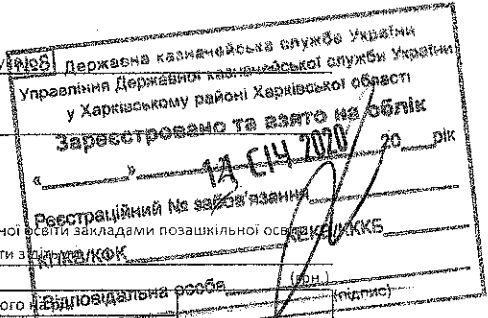 №8
Державна казначейська служба України
Управління Державної казначейської служби України
у Харківському районі Харківської області
Зареєстровано та взято на облік
«____»
14 СІЧ 2020 20____рік
Реєстраційний № зобов'язання
ної освіти закладами позашкільної
КПКВ/КФК КЕКВ/ККК
(грн.)
ого
Відповідальна особа
(підпис)